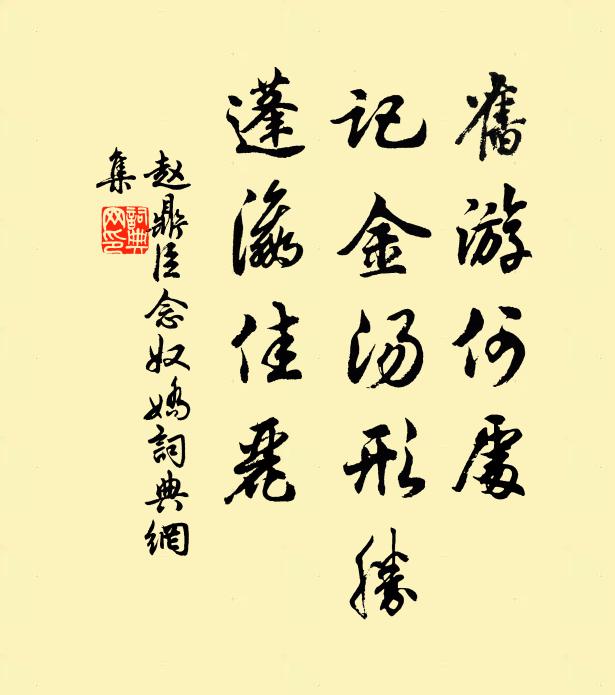 舊游何處
記金汤形勝
蓬瀛佳麗
赵鼎臣念奴嬌詞典網
集
詞典网印